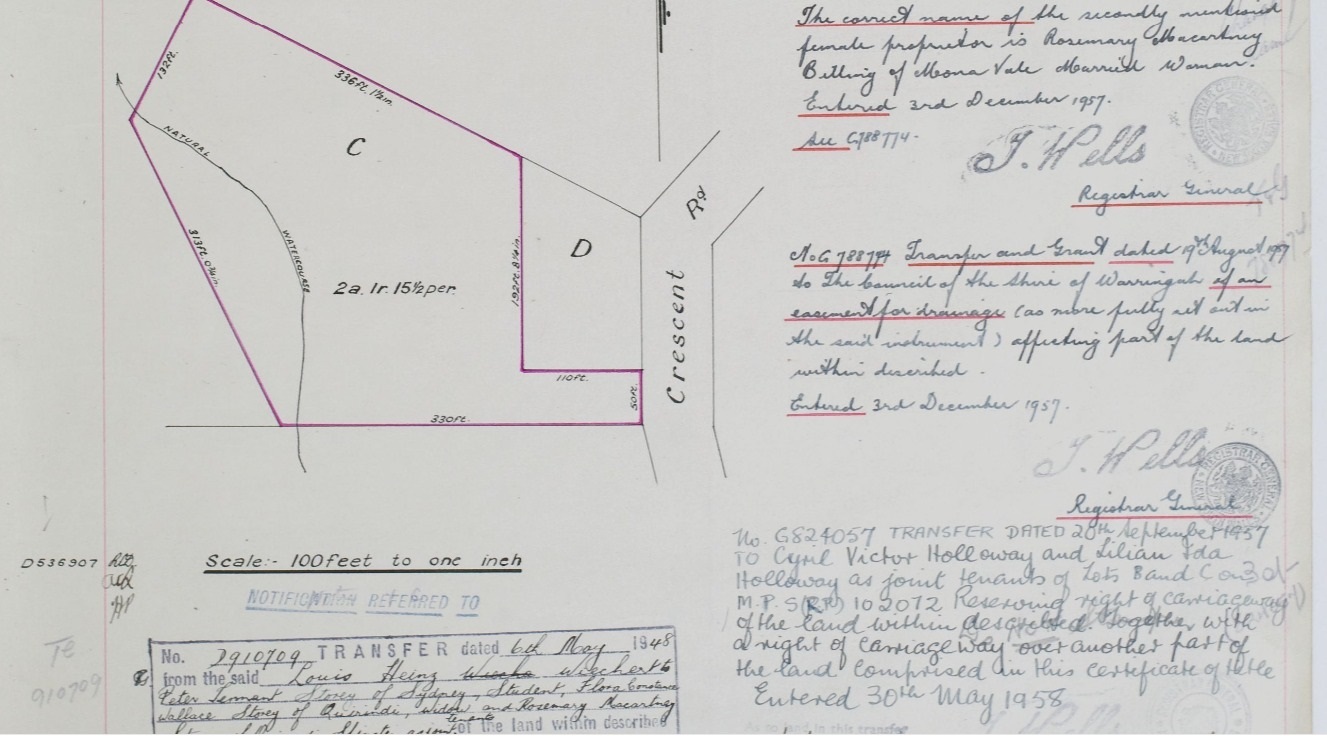 132ft.
336ft. 1½in.
NATURAL
C
WATERCOURSE
313ft. 0¾in.
2a. 1r. 15½per.
192ft. 8¼in.
D
Rd
Crescent
110ft.
50ft.
330ft.
D536907
Scale:- 100feet to one inch
NOTIFICATION REFERRED TO
Te
910709
No. D910709 TRANSFER dated 6th May 1948
from the said Louis Heinz Wiechert to
Peter Tennant Storey of Sydney, Student, Flora Constance
Wallace Storey of Quirindi, widow and Rosemary Macartney
tenants
of the land within described
The correct name of the secondly mentioned
female proprietor is Rosemary Macartney
Billing of Mona Vale Married Woman.
Entered 3rd December 1957.
See G788774.
J. Wells
Registrar General
No. G788774 Transfer and Grant dated 19th August 1957
to The Council of the Shire of Warringah of an
easement for drainage (as more fully set out in
the said instrument) affecting part of the land
within described.
Entered 3rd December 1957.
J. Wells
REGISTRAR GENERAL
Registrar General
No. G824057 TRANSFER DATED 20th September 1957
TO Cyril Victor Holloway and Lilian Ida
Holloway as joint tenants of Lots B and C on
M.P.S (R.P.) 102072 Reserving right of carriageway
of the land within described. Together with
a right of carriage way over another part of
the land comprised in this certificate of title
Entered 30th May 1958
As to land in this transfer